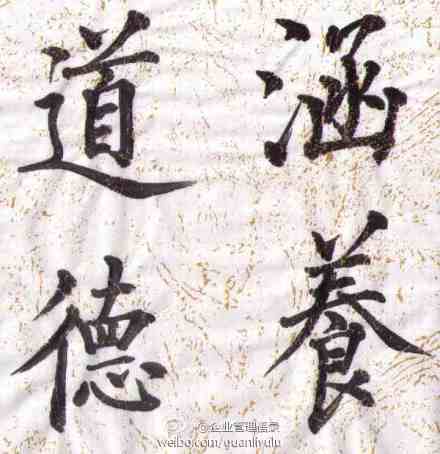 涵養
道德
@企业管理语录
weibo.com/guanliyulu